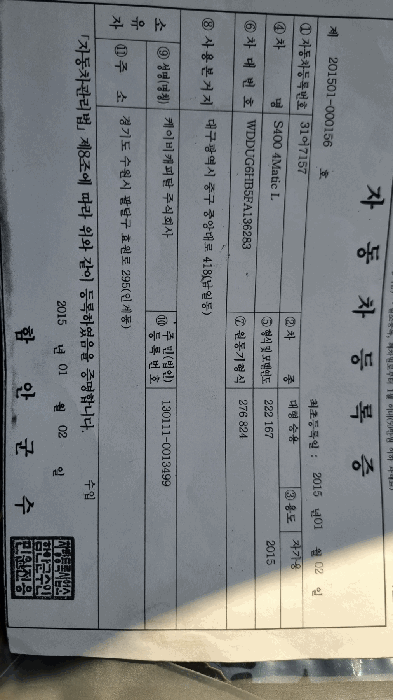 자동차등록증
제 201501-000156 호
최초등록일 : 2015 년 01 월 02 일
① 자동차등록번호 31어7157 ② 차 종 대형 승용 ③ 용도 자가용
④ 차 명 S400 4Matic L ⑤ 형식 및 모델연도 222 167 2015
⑥ 차 대 번 호 WDDUG6HB5FA136283 ⑦ 원동기형식 276 824
⑧ 사용본거지 대구광역시 중구 중앙대로 418(남일동)
소유자 ⑨ 성명(명칭) 케이비캐피탈 주식회사 ⑩ 주민(법인)등록번호 130111-0013499
⑪ 주 소 경기도 수원시 팔달구 효원로 295(인계동)
「자동차관리법」 제8조에 따라 위와 같이 등록하였음을 증명합니다.
수입
2015 년 01 월 02 일
함 안 군 수